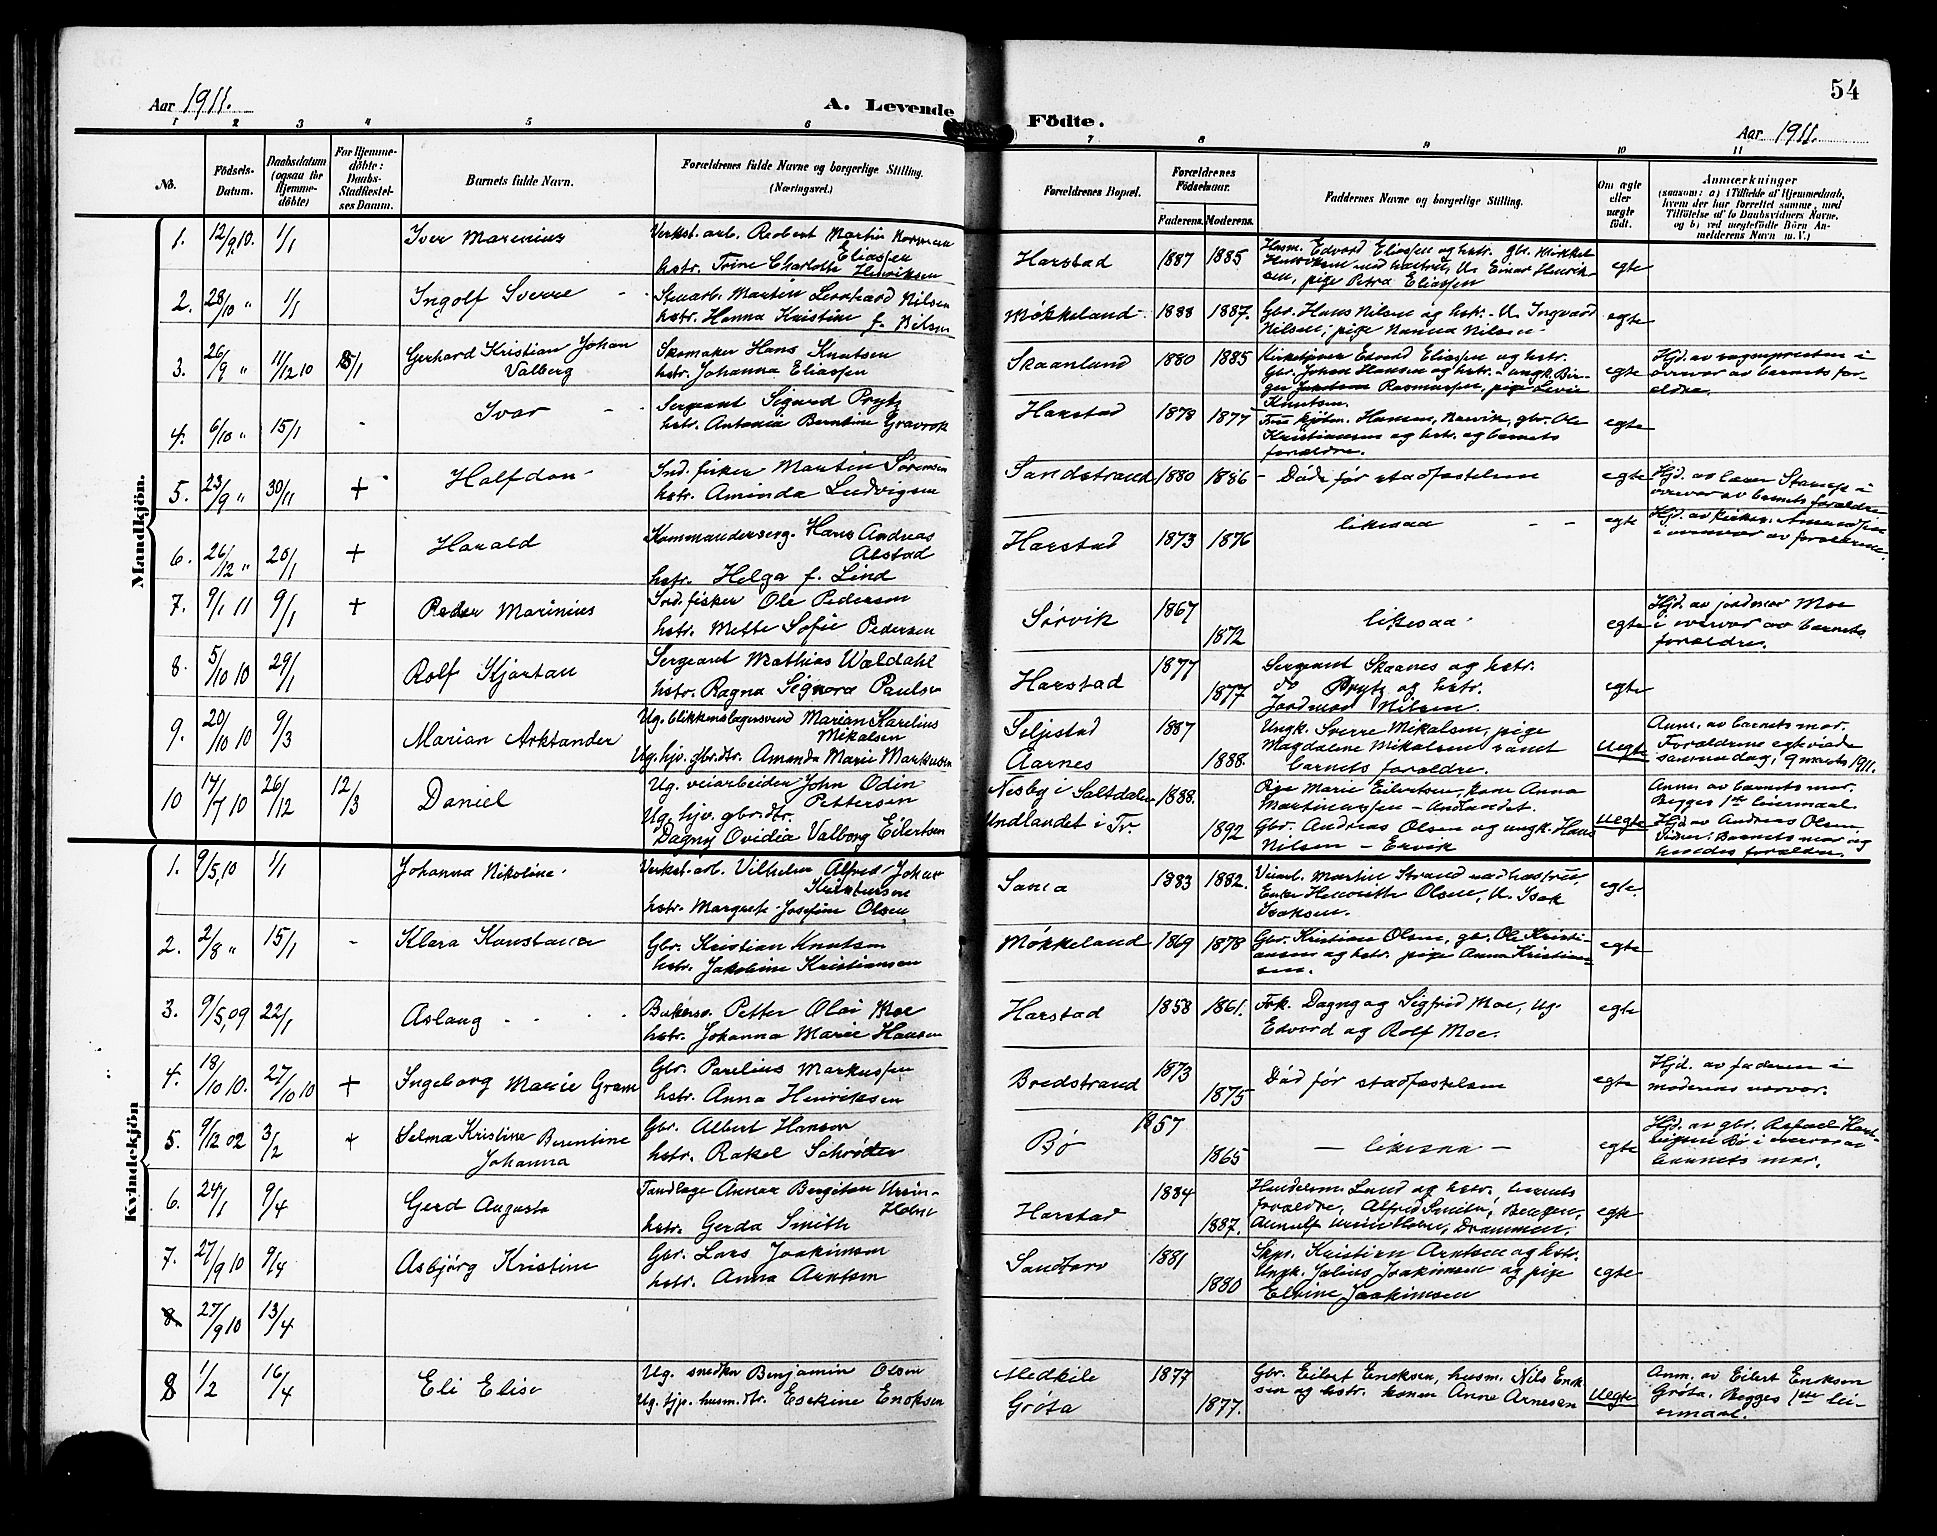 54
Aar 1911.
A. Levende
Födte.
Aar 1911.
1 2 3 4 5 6 7 8 9 10 11
No.
Födsels-
Datum.
Daabsdatum
(ogsaa for
Hjemme-
döbte)
For Hjemme-
döbte:
Daabs-
Stadfæstel-
ses Datum.
Barnets fulde Navn.
Forældrenes fulde Navne og borgerlige Stilling.
(Næringsvei.)
Forældrenes Bopæl.
Forældrenes
Födselsaar.
Faderens. Moderens.
Faddernes Navne og borgerlige Stilling.
Om ægte
eller
uægte
födt.
Anmærkninger
(saasom: a) i Tilfælde af Hjemmedaab,
hvem der har forrettet samme, med
Tilföielse af to Daabsvidners Navne,
og b) ved uægtefödte Börn An-
melderens Navn m. V.)
Mandkjön.
1. 12/9 10. 1/1 Iver Marinius
Verkst.arb. Robert Martin Normann
Eliassen
hstr. Trine Charlotte Henriksen
Harstad 1887 1885
Husm. Edvard Eliassen og hstr. gbr. Mikkel
Henriksen med hustru, U. Einar Henrik-
sen, pige Petra Eliassen
egte
2. 28/10 " 1/1 Ingolf Sverre
Stenarb. Martin Leonhard Nilsen
hstr. Hanna Kristine f. Nilsen
Møkkeland 1888 1887.
Gbr. Hans Nilsen og hstr. U. Ingvard
Nilsen, pige Nanna Nilsen
egte
3. 26/9 " 11/12 10 15/1 Gerhard Kristian Johan
Valberg
Skomaker Hans Knutsen
hstr. Johanna Eliassen
Skaanland 1880 1885
Kirketjener Edvard Eliassen og hstr.
Gbr. Johan Hansen og hstr. - ungk. Bir-
ger Rasmussen, pige Levin
Knutsen.
egte
Hjd. av sogneprsten i
overvær av barnets for-
ældre.
4. 6/10 " 15/1 - Ivar
Sergeant Sigurd Prytz
hstr. Antonia Berntine Gravrok
Harstad 1878 1877
Fru kjøbm. Hansen, Narvik, gbr. Ole
Kristiansen og hstr. og barnets
forældre.
egte
5. 23/9 " 30/11 + Halfdan
Ind. fisker Martin Sørensen
hstr. Aminda Ludvigsen
Sandstrand 1880 1886
Død før stadfæstelsen
egte
Hjd. av lærer i
overvær av barnets forældre
6. 26/12 " 20/1 + Harald
Kommanderserg. Hans Andreas
Alstad
hstr. Helga f. Lind
Harstad 1873 1876
likesaa
egte
Hjd. av
i overvær av forældrene
7. 9/1 11 9/1 + Peder Marinius
Ind. fisker Ole Pederson
hstr. Mette Sofie Pedersen
Sørvik 1867
1872
likesaa
egte
Hjd. av jordmor Moe
i overvær av barnets
forældre.
8. 5/10 10 29/1 Rolf Kjartan
Sergeant Mathias Waldahl
hstr. Ragna Signora Paulsen
Harstad 1877
1877
Sergeant Skaanes og hstr.
do Prytz og hstr.
Jordmor Nilsen.
egte
9. 20/10 10 9/3 Marian Arktander
Ug. blikkenslagersvend Marian Karelius
Mikalsen
Ug. hjv. gbr.dtr. Amanda Marie Markussen
Seljestad
Aarnes 1887
1888.
Ungk. Sverre Mikalsen, pige
Magdalene Mikalsen samt
barnets forældre.
Uegte
Anm. av barnets mor.
Forældrene egteviede
samme dag, 9 marts 1911.
10 17/7 10 26/12 12/3 Daniel
Ug. veiarbeider John Odin
Pettersen
Ug. hjv. gbr.dtr.
Dagny Ovidia Valborg Eilertsen
Nesby i Saltdalen
Undlandet i Tr. 1888.
1892
Pige Marie Eilertsen, kone Anna
Martinussen - Undlandet.
Gbr. Andreas Olsen og ungk. Hans
Nilsen - Ervik
Uegte
Anm. av barnets mor.
Begges 1ste leiermaal
Hjd. av Andreas Olsen
Vidner: Barnets mor og
hendes forældre.
Kvindekjön
1. 9/5, 10 1/1 Johanna Nikoline
Verkst.arb. Vilhelm Alfred Johan
Kristensen
hstr. Margrete Josefine Olsen
Sama 1883 1882.
Veiarb. Martin Strand med hustru,
Enke Henrikke Olsen, U. Isak
Isaksen.
egte
2. 2/8 " 15/1 - Klara Konstanse
Gbr. Kristian Knutsen
hstr. Jakobine Kristiansen
Møkkeland 1869 1878
Gbr. Kristian Olsen, gb. Ole Kristi-
ansen og hstr. pige Anna Kristian-
sen.
egte
3. 9/5, 09 22/1 Aslaug
Bakersv. Petter Olai Moe
hstr. Johanna Marie Hansen
Harstad 1858 1861.
Frk. Dagny og Sigfrid Moe, ug.
Edvard og Rolf Moe.
egte
4. 18/10 10. 27/10 10 + Ingeborg Marie Gram
Gbr. Parelius Markussen
hstr. Anna Henriksen
Bredstrand 1873
1875
Død før stadfæstelsen
egte
Hjd. av faderen i
moderens nærvær.
5. 9/12 02 3/2 + Selma Kristine Berentine
Johanna
Gbr. Albert Hanson
hstr. Rakel Schrøder
Bø 1857
1865
- likesaa -
egte
Hjd. av gbr. Rafael Hart-
vigsen Bø i overvær av
barnets mor.
6. 24/1 9/4 Gerd Augusta
Tandlæge Annar Bergiton Ursin-
Holm
hstr. Gerda Smith
Harstad 1884
1887.
Handelsm. Lund og hstr., barnets
forældre, Alfred Smith, Bergen,
Arnulf Ursin Holm, Drammen.
egte
7. 27/9 10 9/4 Asbjørg Kristine
Gbr. Lars Joakimsen
hstr. Anna Arntsen
Sandtorv 1881
1880
Skps. Kristian Arntsen og hstr.
Ungk. Julius Joakimsen og pige
Elvine Joakimsen
egte
8. 27/9 10 13/4
8 1/2 16/4 Eli Elise
Ug. snedker Benjamin Olsen
Ug. hjv. husm.dtr. Eserine Enoksen
Medkile
Grøta 1877
1877.
Gbr. Eilert Enoksen, husm. Nils Enok-
sen og hstr. konen Anne Arnesen
Uegte
Anm. av Eilert Enoksen
Grøta. Begges 1ste lei-
ermaal.